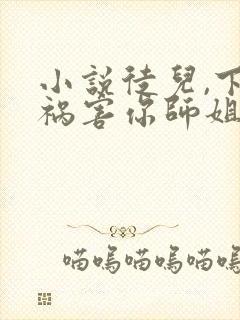 小説徒兒,下
禍害你師姐
喵嗚喵嗚喵嗚